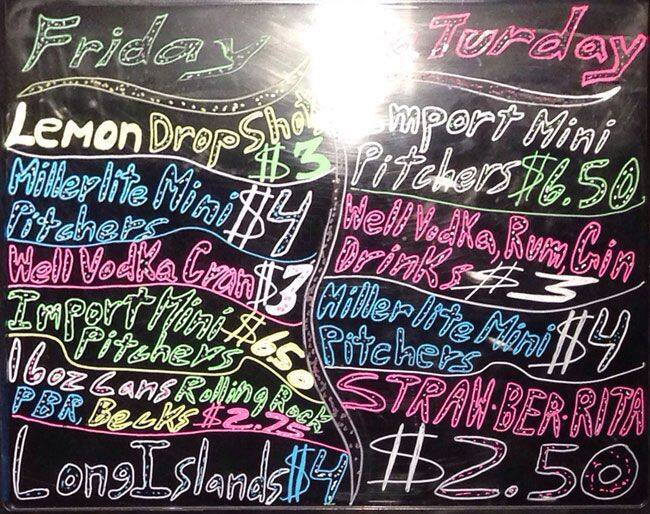 Friday
Lemon Drop Shot
$3
Miller lite Mini
Pitchers $4
Well Vodka Cran $3
Import Mini
Pitchers $6.50
16oz Cans Rolling Rock
PBR Becks $2.75
Long Islands $4
aTurday
Import Mini
Pitchers $6.50
Well Vodka, Rum, Gin
Drinks $3
Miller lite Mini
Pitchers $4
STRAW-BER-RITA
$2.50